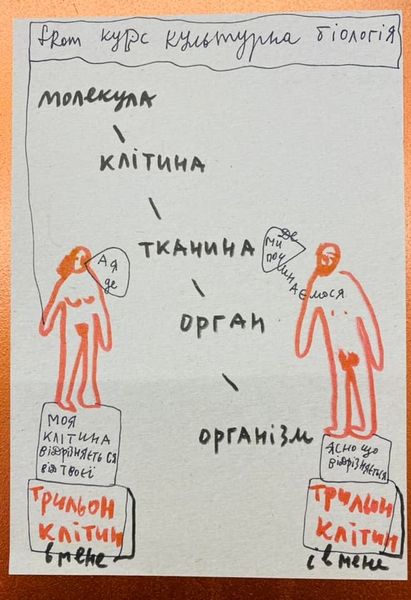 from курс культурна біологія
молекула
клітина
тканина
орган
організм
А я
де
Де
ми
поч
инаємося
моя
клітина
відрізняється
від твоєї
трильон
клітин
в мене
ясно що
відрізняється
трильон
клітин
і в мене